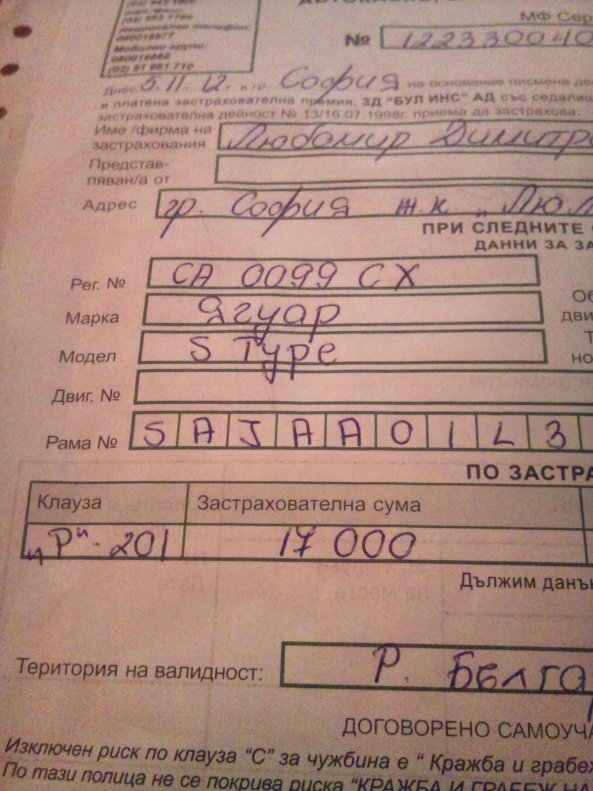 (02) 962 1786
Национален телефон:
080016677
Мобилни групи:
080016688
(02) 91 981 710
МФ Сер
№ 122330040
Днес 5.11.12 г. в гр. София на основание писмена де
и платена застрахователна премия, ЗД "БУЛ ИНС" АД със седалищ
застрахователна дейност № 13/16.07.1998г. приема да застрахова:
Име /фирма на
застрахования Любомир Димитро
Представ-
ляван/а от
Адрес гр. София ж.к. „Люл
ПРИ СЛЕДНИТЕ
ДАННИ ЗА ЗА
Рег. № СА 0099 СХ
Марка Ягуар
Модел S Type
Двиг. №
Рама № SAJAA01L3
ПО ЗАСТРА
Клауза Застрахователна сума
„Р“-201 17 000
Дължим данък
Територия на валидност: Р. Белга
ДОГОВОРЕНО САМОУЧА
Изключен риск по клауза "С" за чужбина е " Кражба и грабеж
По тази полица не се покрива риска "КРАЖБА И ГРАБЕЖ НА